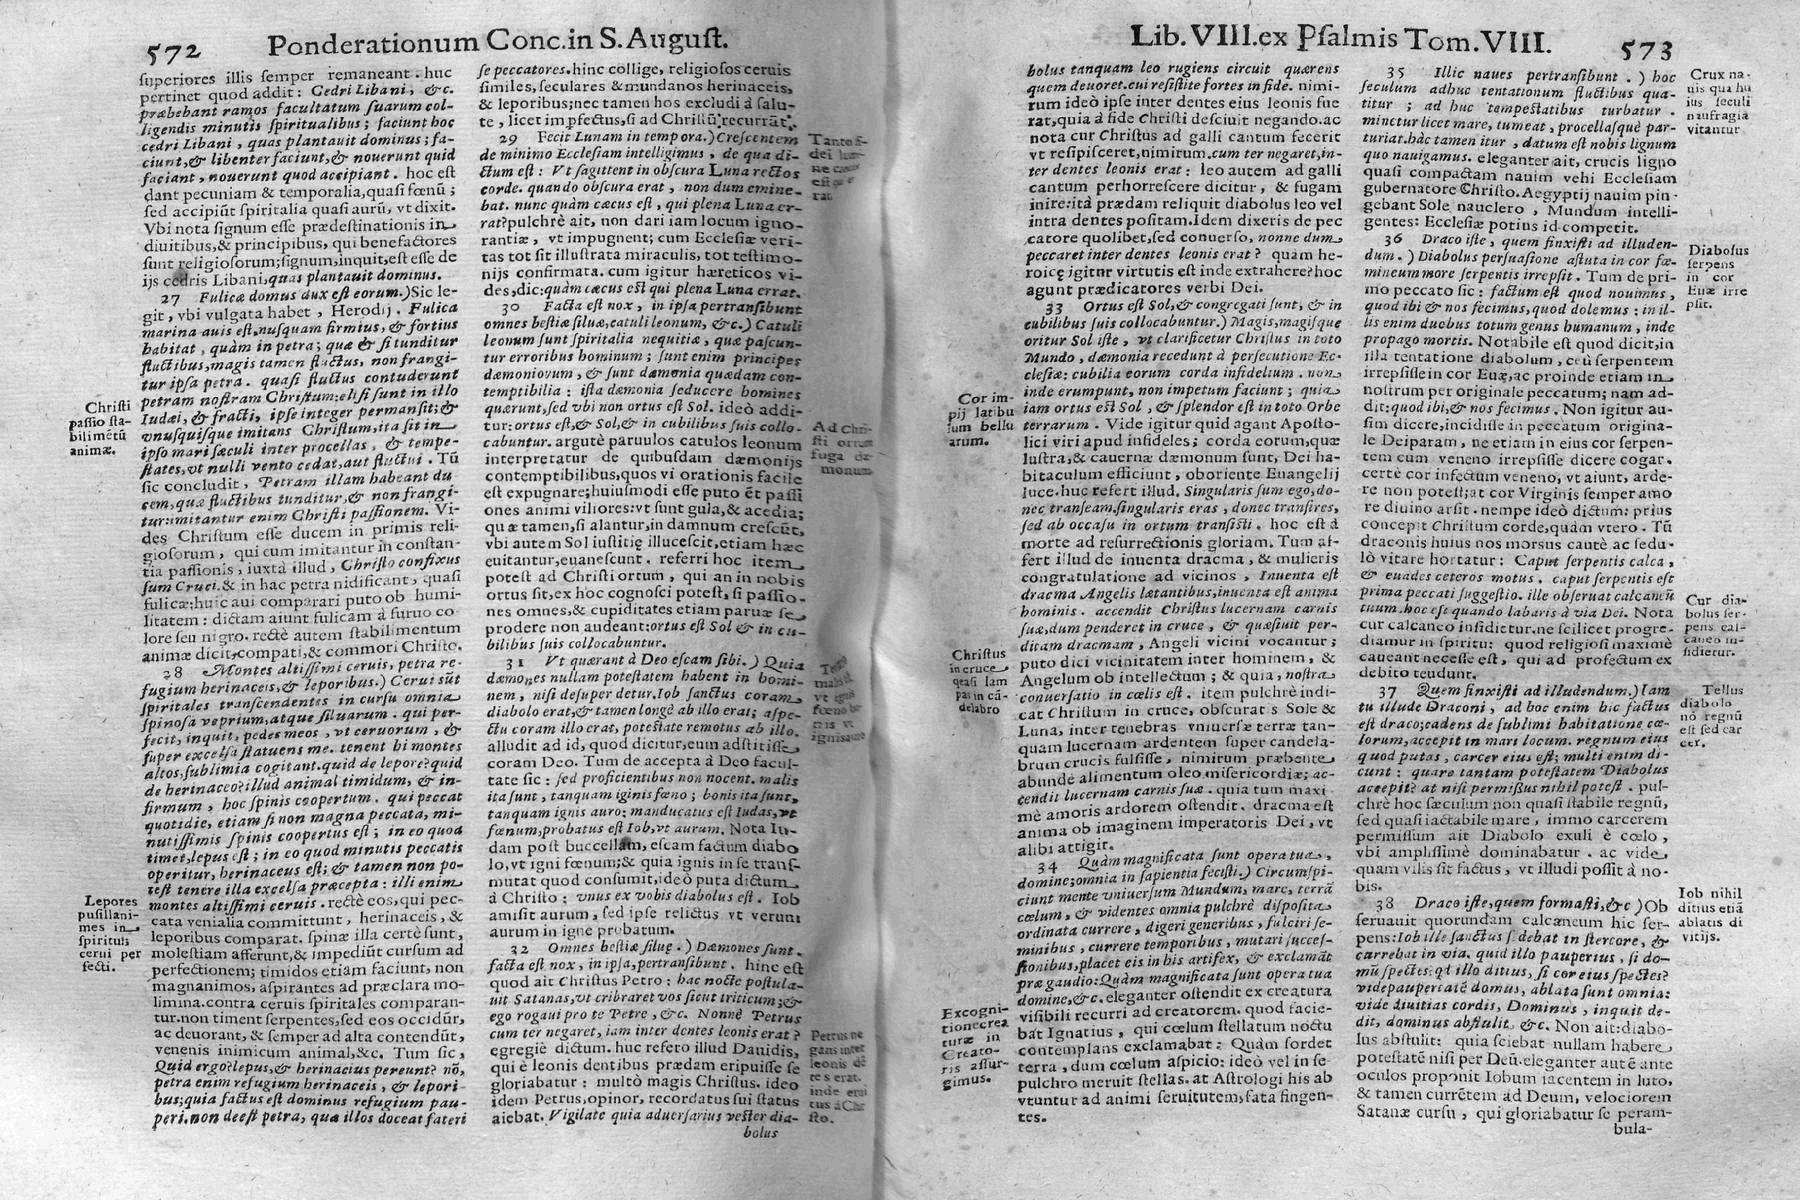 572 Ponderationum Conc. in S. August.
superiores illis semper remaneant. huc
pertinet quod addit: Cedri Libani, &c.
præbebant ramos facultatum suarum col-
ligendis minutis spiritualibus; faciunt hoc
cedri Libani, quas plantauit dominus; fa-
ciunt,& libenter faciunt,& nouerunt quid
faciant, nouerunt quod accipiant. hoc est
dant pecuniam & temporalia, quasi fœnū;
sed accipiūt spiritalia quasi aurū, vt dixit.
Vbi nota signum esse prædestinationis in
diuitibus,& principibus, qui benefactores
sunt religiosorum; signum, inquit, est esse de
ijs cedris Libani, quas plantauit dominus.
27 Fulicæ domus dux est eorum.) Sic le-
git, vbi vulgata habet, Herodij. Fulica
marina auis est, nusquam firmius, & fortius
habitat, quàm in petra; quæ & si tunditur
fluctibus, magis tamen fluctus, non frangi-
tur ipsa petra. quasi fluctus contuderunt
petram nostram Christum: elisi sunt in illo
Iudæi, & fracti, ipse integer permansit; &
vnusquisque imitans Christum, ita sit in
ipso mari sæculi inter procellas, & tempe-
states, vt nulli vento cedat, aut fluctui. Tū
sic concludit, Petram illam habeant du
cem, quæ fluctibus tunditur, & non frangi-
tur: imitantur enim Christi passionem. Vi-
des Christum esse ducem in primis reli-
giosorum, qui cum imitantur in constan-
tia passionis, iuxtà illud, Christo confixus
sum Cruci. & in hac petra nidificant, quasi
fulicæ: huic aui comparari puto ob humi-
litatem: dictam aiunt fulicam à furuo co-
lore seu nigro. rectè autem stabilimentum
animæ dicit, compati, & commori Christo.
28 Montes altissimi ceruis, petra re-
fugium herinaceis,& leporibus.) Cerui sūt
spiritales transcendentes in cursu omnia
spinosa veprium, atque siluarum. qui per-
fecit, inquit, pedes meos, vt ceruorum, &
super excelsa statuens me. tenent hi montes
altos, sublimia cogitant. quid de lepore? quid
de herinaceo? illud animal timidum, & in-
firmum, hoc spinis coopertum. qui peccat
quotidie, etiam si non magna peccata, mi-
nutissimis spinis coopertus est; in eo quod
timet, lepus est; in eo quod minutis peccatis
operitur, herinaceus est; & tamen non po-
test tenere illa excelsa præcepta: illi enim
montes altissimi ceruis. rectè eos, qui pec-
cata venialia committunt, herinaceis, &
leporibus comparat. spinæ illa certè sunt,
molestiam afferunt,& impediūt cursum ad
perfectionem; timidos etiam faciunt, non
magnanimos, aspirantes ad præclara mo-
limina. contra ceruis spiritales comparan-
tur. non timent serpentes, sed eos occidūt,
ac deuorant, & semper ad alta contendūt,
venenis inimicum animal, &c. Tum sic,
Quid ergo? lepus, & herinacius pereunt? nō,
petra enim refugium herinaceis, & lepori-
bus; quia factus est dominus refugium pau-
peri. non deest petra, qua illos doceat fateri
Christi
passio sta-
bilimētū
animæ.
Lepores
pusillani-
mes in
spirituli
cerui per
fecti.
se peccatores. hinc collige, religiosos ceruis
similes, seculares & mundanos herinaceis,
& leporibus; nec tamen hos excludi à salu-
te, licet imperfectus, si ad Christū recurrāt.
29 Fecit Lunam in tempora.) Crescentem
de minimo Ecclesiam intelligimus, de qua di-
ctum est: Vt sagittent in obscura Luna rectos
corde. quando obscura erat, non dum emine-
bat. nunc quàm cæcus est, qui plena Luna er-
rat? pulchrè ait, non dari iam locum igno-
rantiæ, vt impugnent; cum Ecclesiæ veri-
tas tot sit illustrata miraculis, tot testimo-
nijs confirmata. cum igitur hæreticos vi-
des, dic: quàm cæcus est qui plena Luna errat.
30 Facta est nox, in ipsa pertransibunt
omnes bestiæ siluæ, catuli leonum, &c.) Catuli
leonum sunt spiritalia nequitiæ, quæ pascun-
tur erroribus hominum; sunt enim principes
dæmoniorum, & sunt dæmonia quædam con-
temptibilia: ista dæmonia seducere homines
quærunt, sed vbi non ortus est Sol. ideò addi-
tur: ortus est,& Sol,& in cubilibus suis collo-
cabuntur. argutè paruulos catulos leonum
interpretatur de quibusdam dæmonijs
contemptibilibus, quos vi orationis facile
est expugnare; huiusmodi esse puto ēt passi
ones animi viliores: vt sunt gula, & acedia;
quæ tamen, si alantur, in damnum crescūt,
vbi autem Sol iustitię illucescit, etiam hæc
euitantur, euanescunt. referri hoc item
potest ad Christi ortum, qui an in nobis
ortus sit, ex hoc cognosci potest, si passio-
nes omnes, & cupiditates etiam paruæ se
prodere non audeant: ortus est Sol & in cu-
bilibus suis collocabuntur.
31 Vt quærant à Deo escam sibi.) Quia
dæmones nullam potestatem habent in homi-
nem, nisi desuper detur. Iob sanctus coram
diabolo erat,& tamen longè ab illo erat; aspe-
ctu coram illo erat, potestate remotus ab illo.
alludit ad id, quod dicitur, eum adstitisse
coram Deo. Tum de accepta à Deo facul-
tate sic: sed proficientibus non nocent. malis
ita sunt, tanquam iginis fœno; bonis ita sunt,
tanquam ignis auro: manducatus est Iudas, vt
fœnum, probatus est Iob, vt aurum. Nota Iu-
dam post buccellam, escam factum diabo
lo, vt igni fœnum;& quia ignis in se trans-
mutat quod consumit, ideò puta dictum
à Christo: vnus ex vobis diabolus est. Iob
amisit aurum, sed ipse relictus vt verum
aurum in igne probatum.
32 Omnes bestiæ siluę.) Dæmones sunt.
facta est nox, in ipsa, pertransibunt. hinc est
quod ait Christus Petro: hac nocte postula-
uit Satanas, vt cribraret vos sicut triticum; &
ego rogaui pro te Petre, &c. Nonnè Petrus
cum ter negaret, iam inter dentes leonis erat?
egregiè dictum. huc refero illud Dauidis,
qui è leonis dentibus prædam eripuisse se
gloriabatur: multò magis Christus. ideo
idem Petrus, opinor, recordatus sui status
aiebat. Vigilate quia aduersarius vester dia-
bolus
Ad Chri-
sti ortum
fuga dæ-
monum
Petrus ne
gans inter
leonis dē
tes erat.
inde erui
tus à Chri
sto.
Lib. VIII. ex Psalmis Tom. VIII. 573
bolus tanquam leo rugiens circuit quærens
quem deuoret. cui resistite fortes in fide. nimi-
rum ideò ipse inter dentes eius leonis fue
rat, quia à fide Christi desciuit negando. ac
nota cur Christus ad galli cantum fecerit
vt resipisceret, nimirum. cum ter negaret, in-
ter dentes leonis erat: leo autem ad galli
cantum perhorrescere dicitur, & fugam
inire: ità prædam reliquit diabolus leo vel
intra dentes positam. Idem dixeris de pec
catore quolibet, sed conuerso, nonne dum
peccaret inter dentes leonis erat? quàm he-
roicę igitur virtutis est inde extrahere? hoc
agunt prædicatores verbi Dei.
33 Ortus est Sol,& congregati sunt, & in
cubilibus suis collocabuntur.) Magis, magisque
oritur Sol iste, vt clarificetur Christus in toto
Mundo, dæmonia recedunt à persecutione Ec-
clesiæ: cubilia eorum corda infidelium. non
inde erumpunt, non impetum faciunt; quia
iam ortus est Sol, & splendor est in toto Orbe
terrarum. Vide igitur quid agant Aposto-
lici viri apud infideles; corda eorum, quæ
lustra,& cauernæ dæmonum sunt, Dei ha-
bitaculum efficiunt, oboriente Euangelij
luce. huc refert illud. Singularis sum ego, do-
nec transeam. singularis eras, donec transires,
sed ab occasu in ortum transisti. hoc est à
morte ad resurrectionis gloriam. Tum af-
fert illud de inuenta dracma, & mulieris
congratulatione ad vicinos, Inuenta est
dracma Angelis lætantibus, inuenta est anima
hominis. accendit Christus lucernam carnis
suæ, dum penderet in cruce, & quæsiuit per-
ditam dracmam, Angeli vicini vocantur;
puto dici vicinitatem inter hominem, &
Angelum ob intellectum; & quia, nostra
conuersatio in cœlis est. item pulchrè indi-
cat Christum in cruce, obscurat s Sole &
Luna, inter tenebras vniuersæ terræ tan-
quam lucernam ardentem super candela-
brum crucis fulsisse, nimirum præbente
abundè alimentum oleo misericordiæ; ac-
cendit lucernam carnis suæ. quia tum maxi
mè amoris ardorem ostendit. dracma est
anima ob imaginem imperatoris Dei, vt
alibi attigit.
34 Quàm magnificata sunt opera tua,
domine; omnia in sapientia fecisti.) Circumspi-
ciunt mente vniuersum Mundum, mare, terrā
cœlum, & videntes omnia pulchrè disposita
ordinata currere, digeri generibus, fulciri se-
minibus, currere temporibus, mutari succes-
sionibus, placet eis in his artifex, & exclamāt
præ gaudio: Quàm magnificata sunt opera tua
domine,&c. eleganter ostendit ex creatura
visibili recurri ad creatorem. quod facie-
bat Ignatius, qui cœlum stellatum noctu
contemplans exclamabat: Quàm sordet
terra, dum cœlum aspicio: ideò vel in se-
pulchro meruit stellas. at Astrologi his ab
vtuntur ad animi seruitutem, fata fingen-
tes.
Cor im-
pij latibu
lum bellu
arum.
Christus
in cruce
quasi lam
pas in cā-
delabro
Excogni-
tione crea
turæ in
Creato-
ris assur-
gimus.
35 Illic naues pertransibunt.) hoc
seculum adhuc tentationum fluctibus qua-
titur; ad huc tempestatibus turbatur.
minctur licet mare, tumeat, procellasquè par-
turiat. hàc tamen itur, datum est nobis lignum
quo nauigamus. eleganter ait, crucis ligno
quasi compactam nauim vehi Ecclesiam
gubernatore Christo. Aegyptij nauim pin-
gebant Sole nauclero, Mundum intelli-
gentes: Ecclesiæ potius id competit.
36 Draco iste, quem finxisti ad illuden-
dum.) Diabolus persuasione astuta in cor fœ-
mineum more serpentis irrepsit. Tum de pri-
mo peccato sic: factum est quod nouimus,
quod ibi & nos fecimus, quod dolemus: in il-
lis enim duobus totum genus humanum, inde
propago mortis. Notabile est quod dicit, in
illa tentatione diabolum, ceù serpentem
irrepsisse in cor Euæ, ac proinde etiam in
nostrum per originale peccatum; nam ad-
dit: quod ibi,& nos fecimus. Non igitur au-
sim dicere, incidisse in peccatum origina-
le Deiparam, ne etiam in eius cor serpen-
tem cum veneno irrepsisse dicere cogar.
certè cor infectum veneno, vt aiunt, arde-
re non potest; at cor Virginis semper amo
re diuino arsit. nempe ideò dictum: prius
concepit Christum corde, quàm vtero. Tū
draconis huius nos morsus cautè ac sedu-
lò vitare hortatur: Caput serpentis calca,
& euades ceteros motus. caput serpentis est
prima peccati suggestio. ille obseruat calcaneū
tuum. hoc est quando labaris à via Dei. Nota
cur calcaneo insidietur. ne scilicet progre-
diamur in spiritu: quod religiosi maximè
caueant necesse est, qui ad profectum ex
debito tendunt.
37 Quem finxisti ad illudendum.) Iam
tu illude Draconi, ad hoc enim hic factus
est draco; cadens de sublimi habitatione cœ-
lorum, accepit in mari locum. regnum eius
quod putas, carcer eius est; multi enim di-
cunt: quare tantam potestatem Diabolus
accepit? at nisi permissus nihil potest. pul-
chrè hoc sæculum non quasi stabile regnū,
sed quasi iactabile mare, immo carcerem
permissum ait Diabolo exuli è cœlo,
vbi amplissimè dominabatur. ac vide
quam vilis sit factus, vt illudi possit à no-
bis.
38 Draco iste, quem formasti,&c) Ob
seruauit quorundam calcaneum hic ser-
pens: Iob ille sanctus sedebat in stercore, &
carrebat in via. quid illo pauperius, si do-
mū spectes: qd illo ditius, si cor eius spectes?
vide paupertatē domus, ablata sunt omnia:
vide diuitias cordis, Dominus, inquit, de-
dit, dominus abstulit, &c. Non ait: diabo-
lus abstulit: quia sciebat nullam habere
potestatē nisi per Deū. eleganter autē ante
oculos proponit Iobum iacentem in luto,
& tamen currētem ad Deum, velociorem
Satanæ cursu, qui gloriabatur se peram-
bula-
Crux na-
uis qua hu
ius seculi
naufragia
vitantur
Diabolus
serpens
in cor
Euæ irre
psit.
Cur dia-
bolus ser-
pens cal-
caneo in-
sidietur.
Tellus
diabolo
nō regnū
est sed car
cer.
Iob nihil
ditius etiā
ablatis di
vitijs.